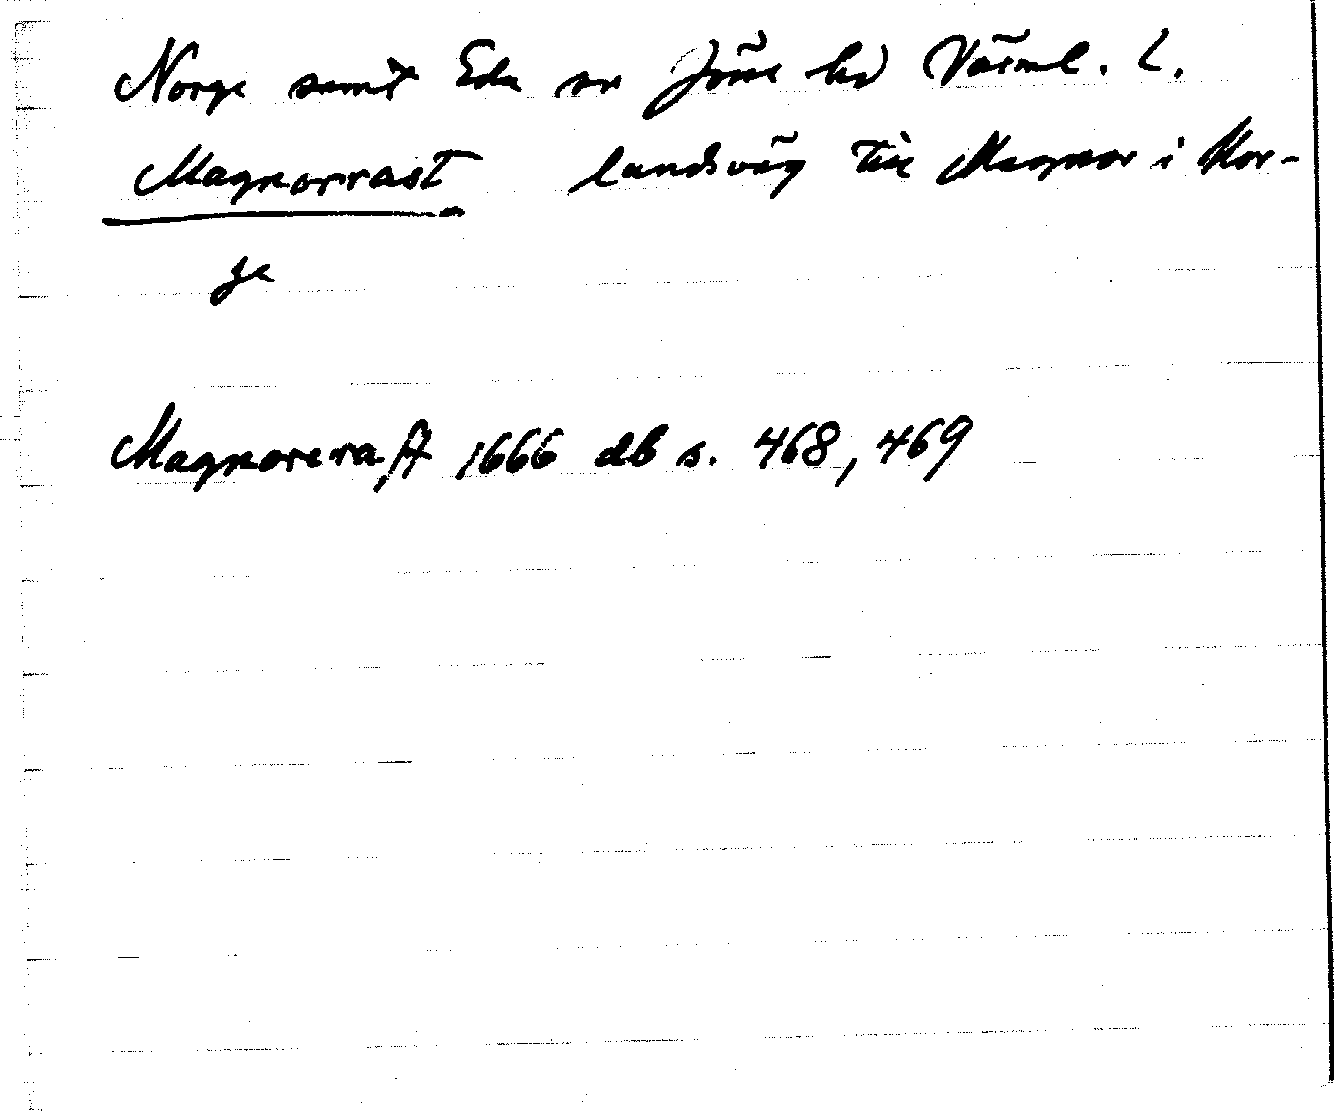 Norge samt Eda sn Jösse hd Värml. L.
Magnorrast landsväg till Magnor i Nor-
ge
Magnorera,ſt 1666 db s. 468, 469